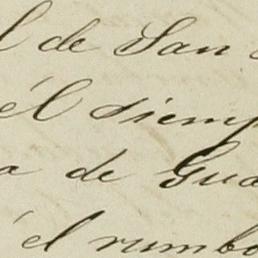 l de San
él siemp
a de Gua
el rumbo